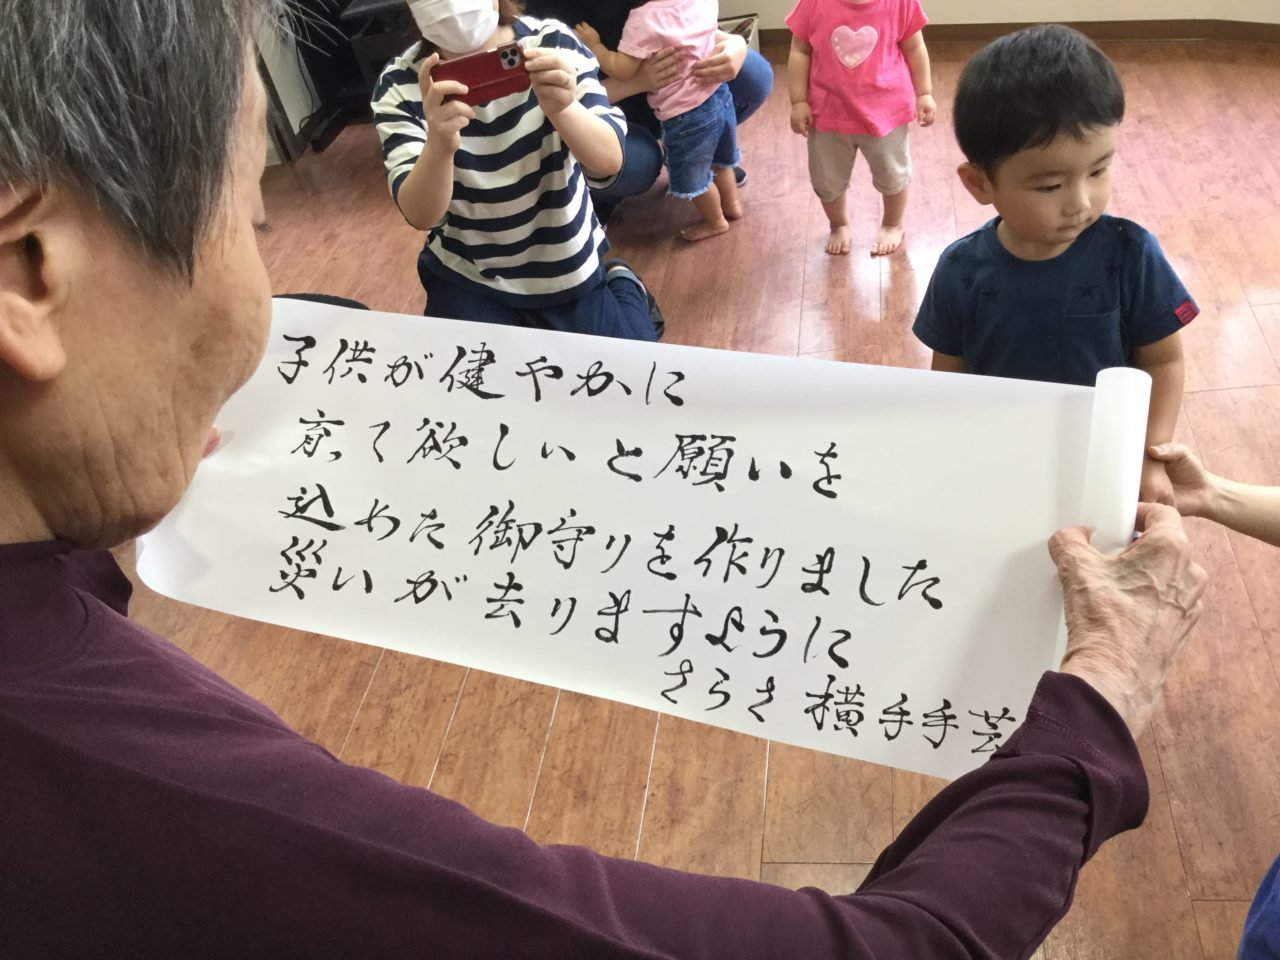 子供が健やかに
育って欲しいと願いを
込めた御守りを作りました
災いが去りますように
さらさ横手手芸